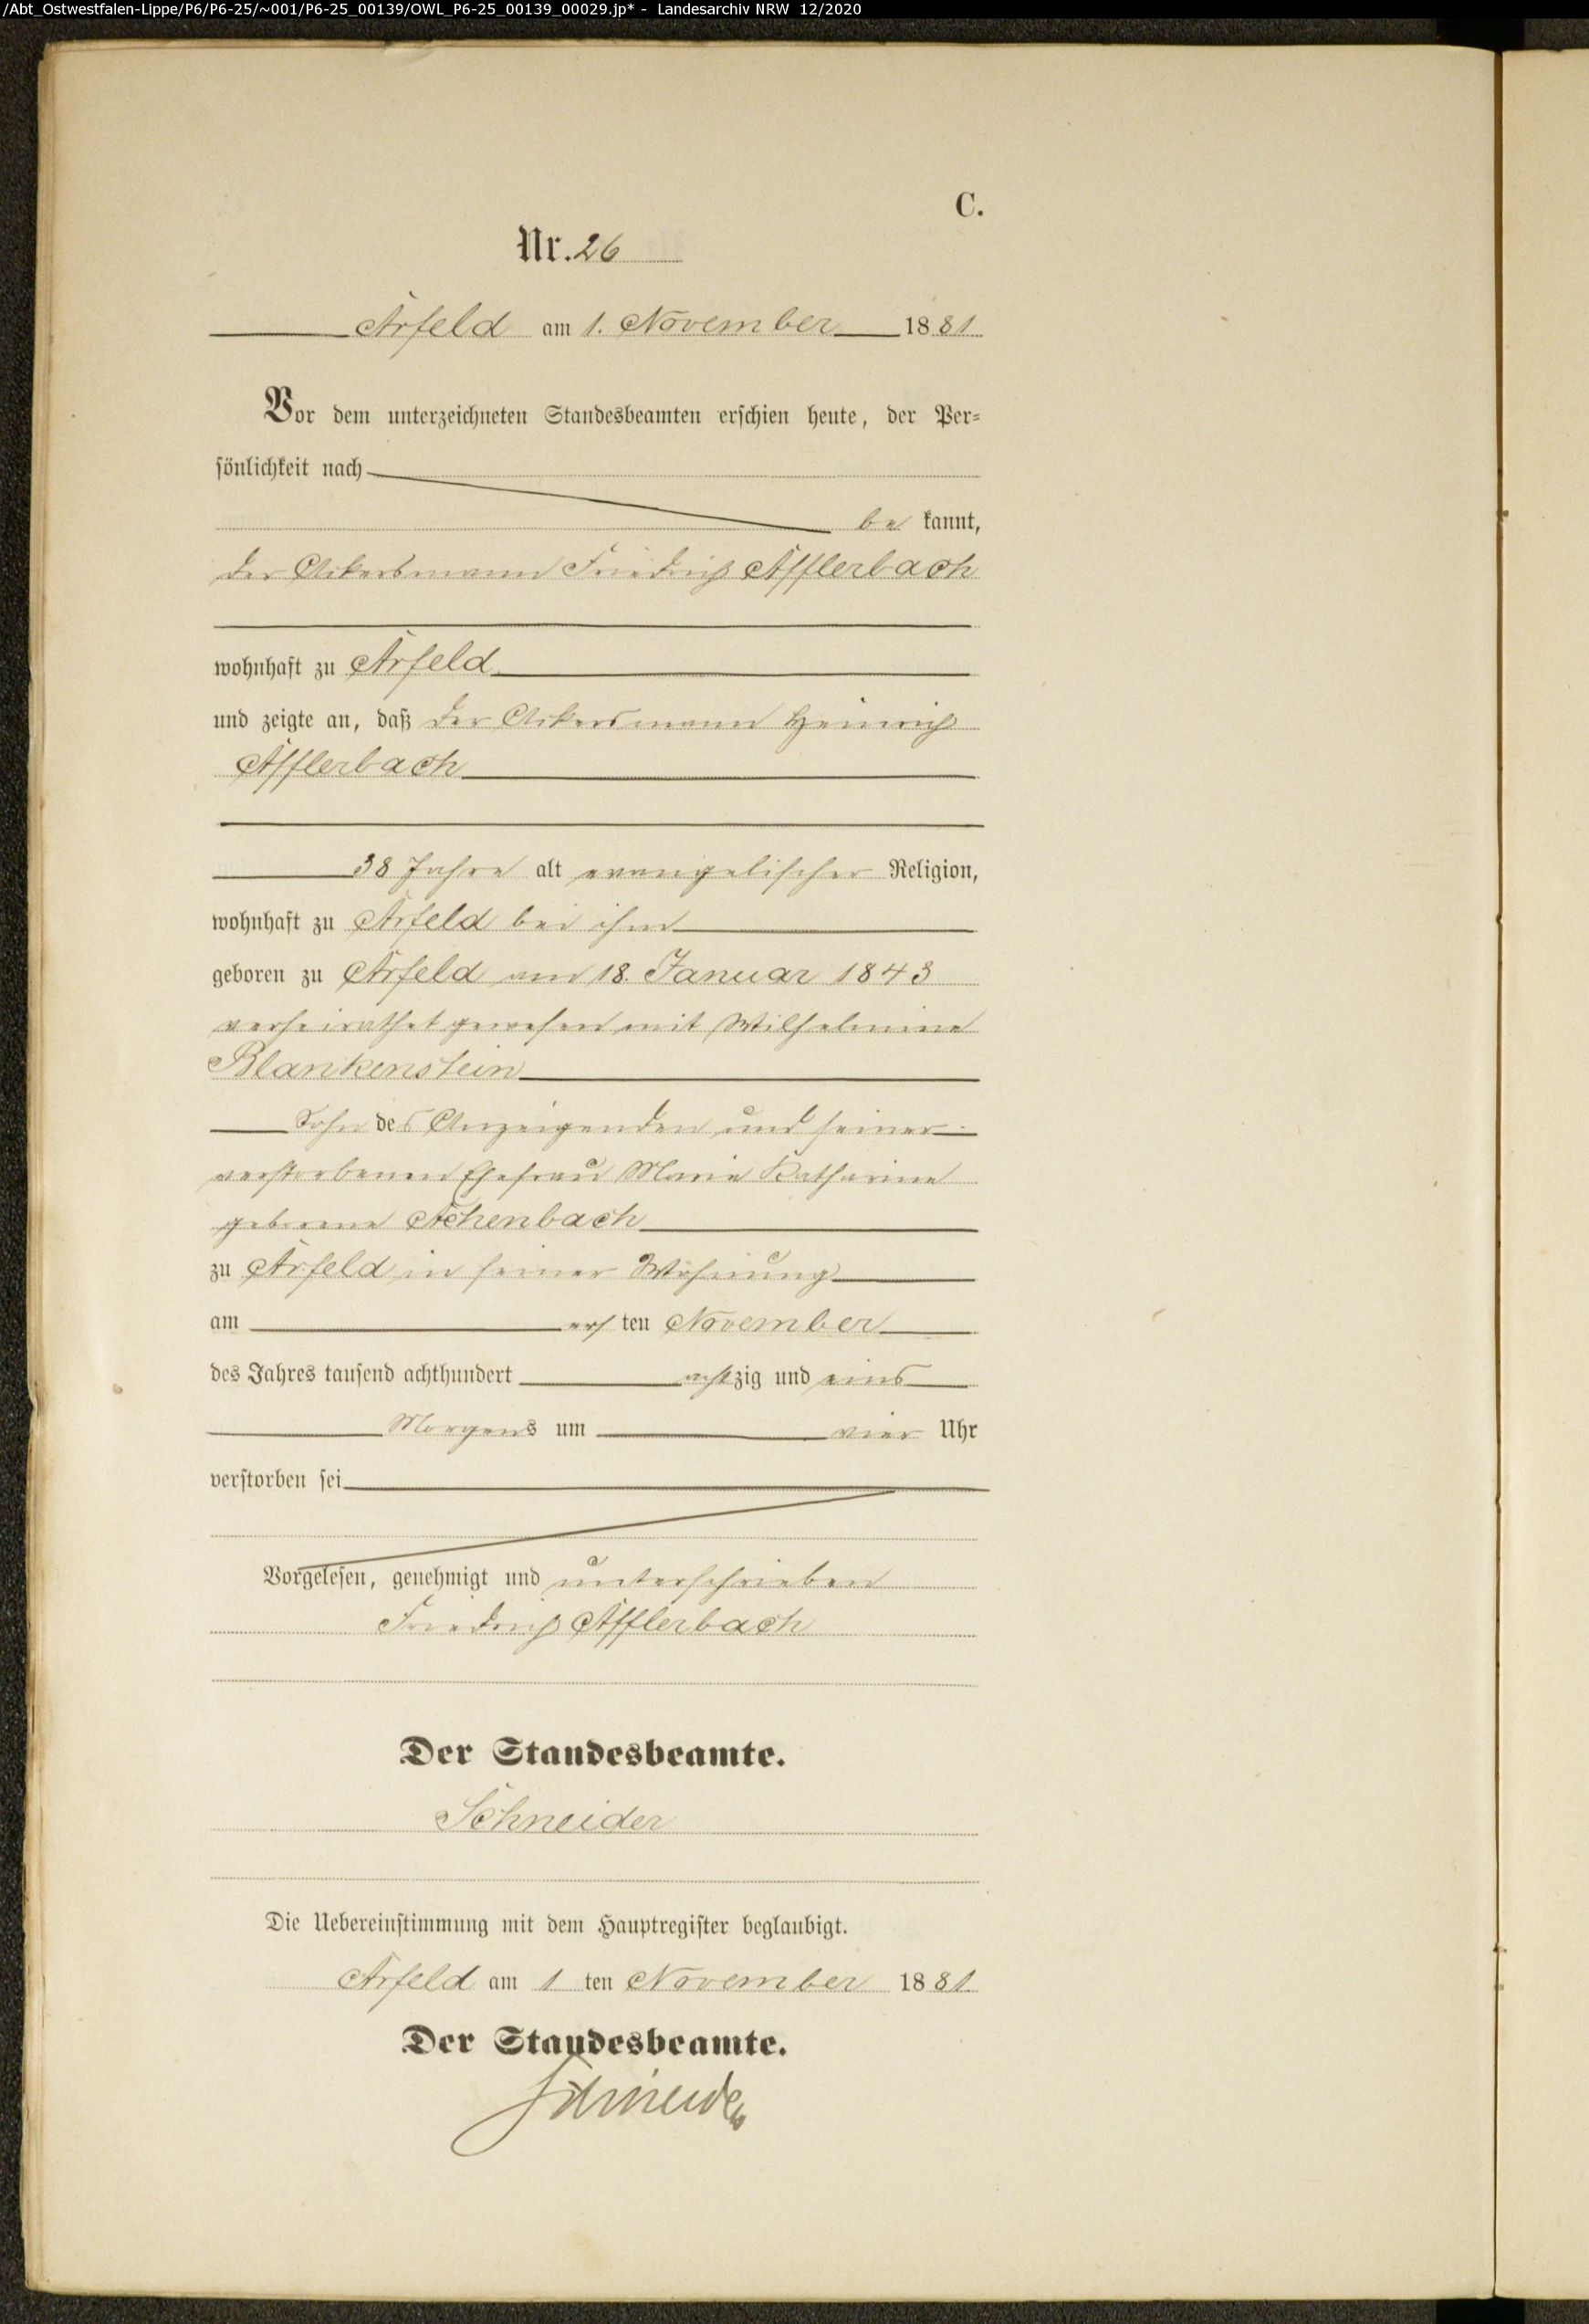 /Abt_Ostwestfalen-Lippe/P6/P6-25/~001/P6-25_00139/OWL_P6-25_00139_00029.jp* - Landesarchiv NRW 12/2020
C.
Nr. 26
Arfeld am 1. November 1881
Vor dem unterzeichneten Standesbeamten erschien heute, der Per-
sönlichkeit nach
be kannt,
der Ackersmann Friedrich Afflerbach
wohnhaft zu Arfeld
und zeigte an, daß der Ackersmann Heinrich
Afflerbach
38 Jahre alt evangelischer Religion,
wohnhaft zu Arfeld bei ihm
geboren zu Arfeld am 18. Januar 1843
verheirathet gewesen mit Wilhelmine
Blankenstein
Sohn des Anzeigenden und seiner
verstorbenen Ehefrau Marie Katharine
geborene Achenbach
zu Arfeld in seiner Wohnung
am ersten November
des Jahres tausend achthundert achtzig und eins
Morgens um vier Uhr
verstorben sei
Vorgelesen, genehmigt und unterschrieben
Friedrich Afflerbach
Der Standesbeamte.
Schneider
Die Uebereinstimmung mit dem Hauptregister beglaubigt.
Arfeld am 1 ten November 1881.
Der Standesbeamte.
Schneider